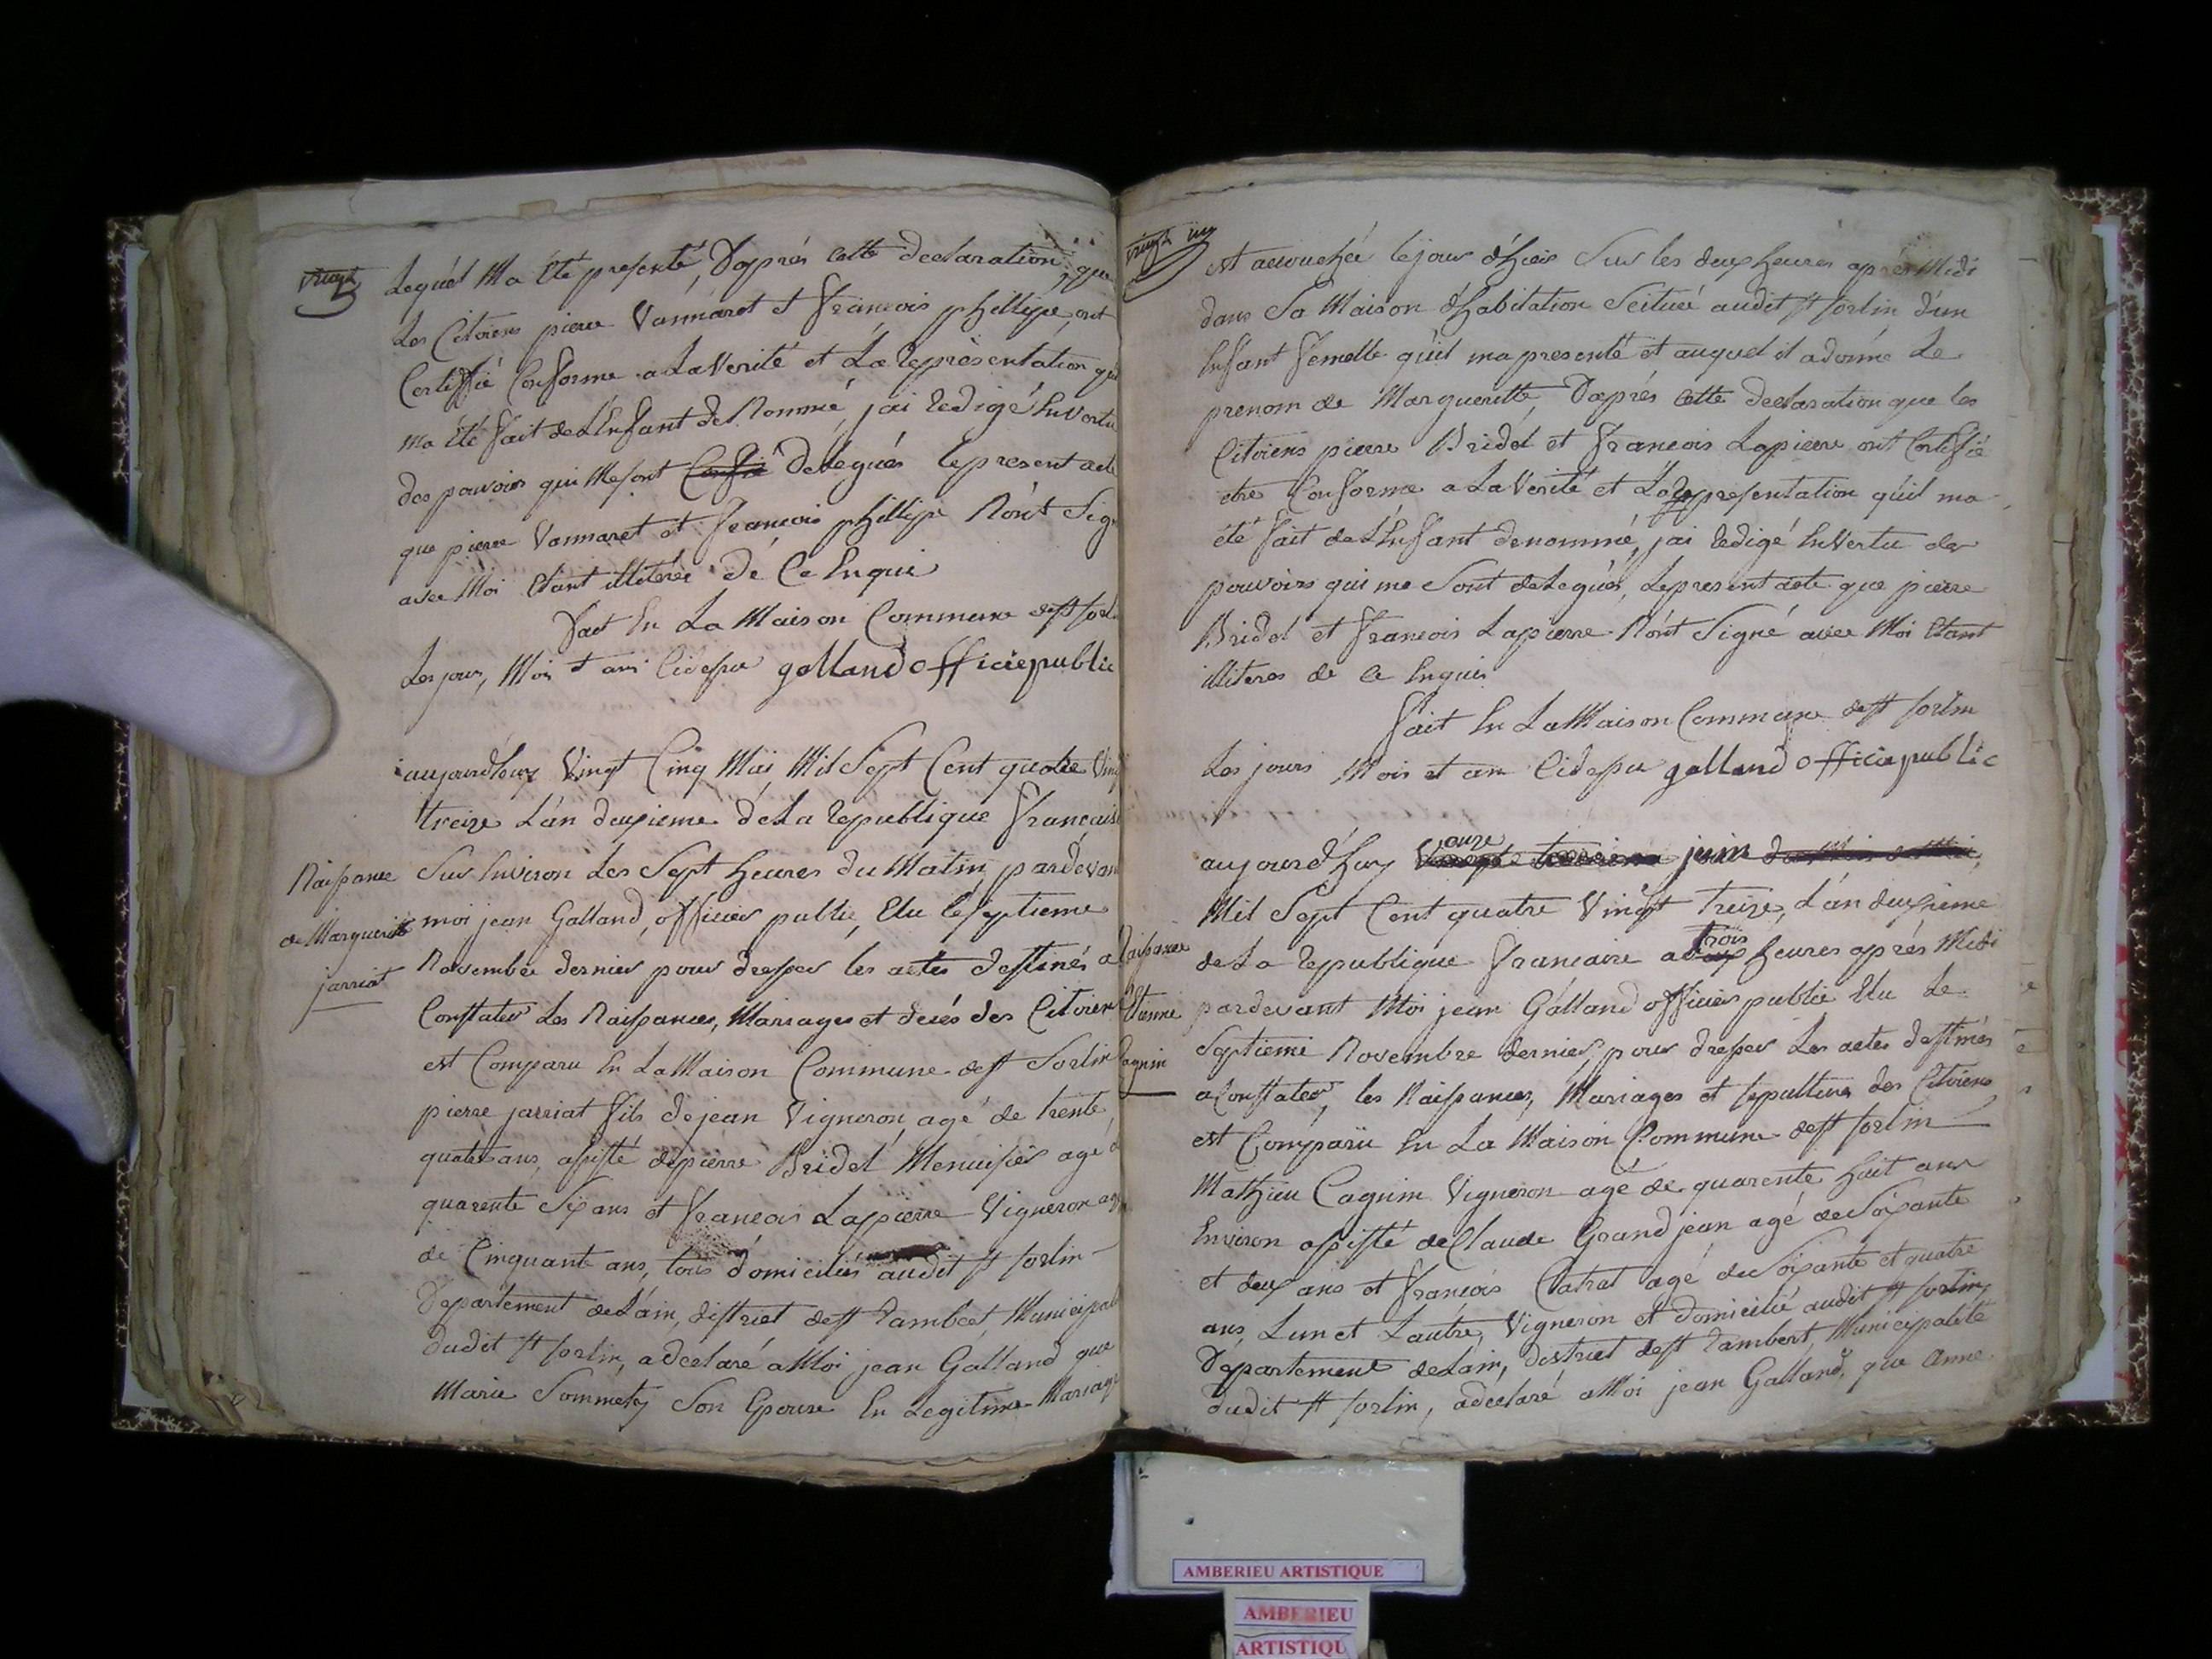 vingt
Lequel Ma Eté presenté, D'aprés cette declaration, que
Les Citoiens pierre Vannaret et francois phillipe, ont
Certiffié Conforme a La Verité et La represèntation qui
ma Eté fait de L'Enfant de Nommé, jai redigé En Vertu
des pouvoirs qui Me sont Confié delegués le present acte
que pierre Vannaret et francois phillipe N'ont Signé
avec Moi Etant illiterés de Ce Enquis
Fait En La Maison Commune de st sorlin
Les jour, Mois et an Cidessu galland officié public
aujourdhuy Vingt Cinq Mai Mil Sept Cent quatre Vingt
treize L'an deuxieme de La republique francaise
Sur Environ Les Sept heures du Matin, pardevant
moi jean Galland, officier public, Elu le Septieme
Novembre dernier pour dresser les actes destinés a
Constater Les Naissances, Mariages et decés des Citoiens
est Comparu En La Maison Commune de st Sorlin
pierre jarriat fils de jean Vigneron, agé de trente
quatre ans, assisté de pierre Bridel Menuisier agé de
quarente Six ans et francois Lapierre Vigneron agé
de Cinquante ans, tous domiciliés audit st sorlin
Département de L'ain, district de st rambert, Municipalité
dudit st sorlin, a declaré a Moi jean Galland que
Marie Sommety Son Epouse En Legitime Mariage
Naissance
de Marguerite
jarriat
vingt un
est accouchée le jour d'hier Sur les deux heures aprés Midi
dans Sa Maison d'habitation Scituée audit st sorlin d'un
Enfant femelle qu'il ma presenté et auquel il a donné Le
prenom de Margueritte, D'aprés Cette declaration que les
Citoiens pierre Bridel et francois Lapierre ont Certiffié
etre Conforme a La Verité et La representation qu'il ma
été fait de L'Enfant denommé, jai redigé En Vertu des
pouvoirs qui me Sont delegués, Le present acte que pierre
Bridel et francois Lapierre N'ont Signé avec Moi Etant
illiteres de ce Enquis
fait En La Maison Commune de st sorlin
Les jours Mois et an Cidessu galland officié public
aujourdhuy onze juin
Mil Sept Cent quatre Vingt Treize, L'an deuxieme
de La republique francaise a trois heures aprés Midi
pardevant Moi jean Galland officier public Elu Le
Septieme Novembre dernier, pour dresser Les actes destinés
a Constater, les Naissances, Mariages et sepulture des Citoiens
est Comparu En La Maison Commune de st sorlin
Mathieu Cagnin Vigneron agé de quarente huit ans
Environ assisté de Claude Grandjean agé de Soixante
et deux ans et francois Chatrat agé de Soixante et quatre
ans, L'un et L'autre, Vigneron et domicilié audit st sorlin,
Département de L'ain, district de st rambert, Municipalité
dudit st sorlin, a declaré a Moi jean Galland, que anne
Naissance
Etienne
Cagnin
AMBERIEU ARTISTIQUE
AMBERIEU
ARTISTIQU